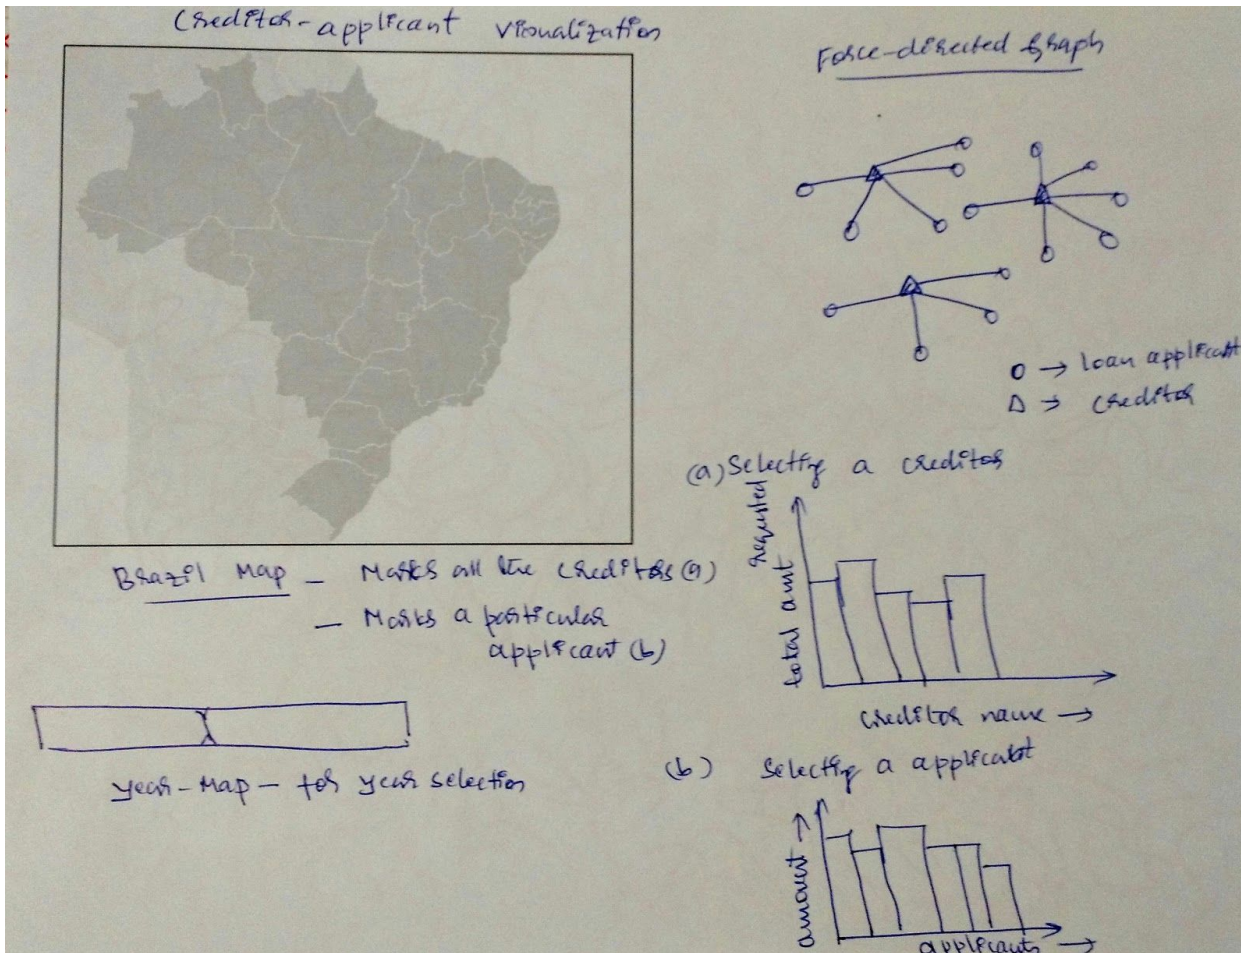 Creditor-applicant visualization
Force-directed Graph
O → loan applicant
Δ → creditor
Brazil Map - Marks all the creditors (a)
- Marks a particular
applicant (b)
Year-Map - for year selection
(a) Selecting a creditor
total amt requested
creditor name →
(b) Selecting a applicant
amount →
applicants →